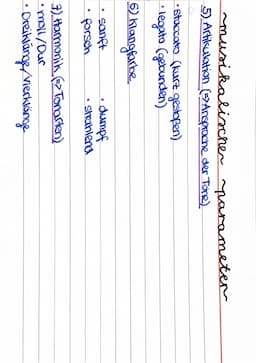 ~musikalische~ ~parameter~
5) Artikulation (=> Ansprache der Töne)
• staccato (kurz gestoßen)
• legato (gebunden)
6) Klangfarbe
• sanft • dumpf
• forsch • strahlend
7) Harmonik (=> Tonarten)
• moll/Dur
• Dreiklänge/Vierklänge